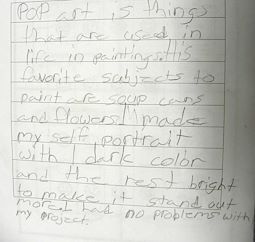 Pop art is things
that are used in
life in paintings. His
favorite subjects to
paint are soup cans
and flowers. I made
my self portrait
with 1 dark color
and the rest bright
to make it stand out
more. I had no problems with
my project.